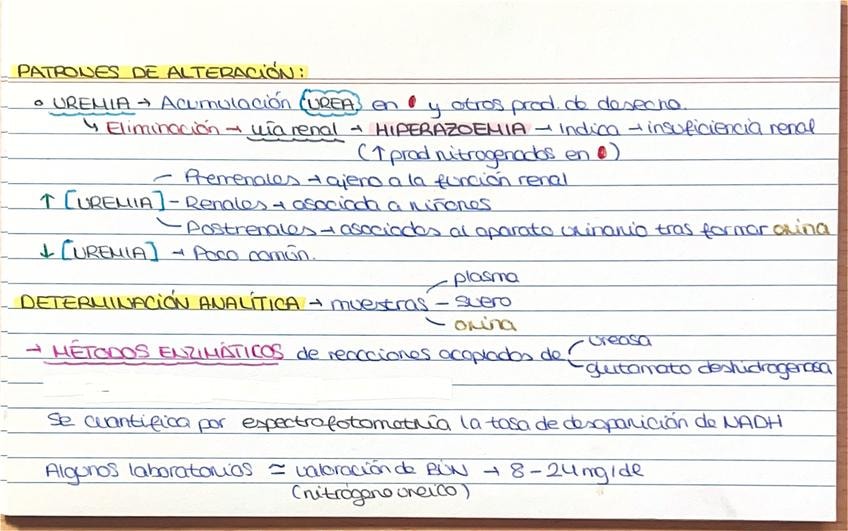 PATRONES DE ALTERACIÓN:
° UREMIA → Acumulación (UREA) en y otros prod. de desecho.
↳ Eliminación → vía renal → HIPERAZOEMIA → Indica → insuficiencia renal
(↑ prod nitrogenados en )
- Prerrenales → ajeno a la función renal
↑ [UREMIA] - Renales → asociada a riñones
- Postrenales → asociados al aparato urinario tras formar orina
↓ [UREMIA] → Poco común.
- plasma
DETERMINACIÓN ANALÍTICA → muestras - suero
- orina
→ MÉTODOS ENZIMÁTICOS de reacciones acoplados de
ureasa
glutamato deshidrogerosa
Se cuantifica por espectrofotometría la tasa de desaparición de NADH
Algunos laboratorios ≃ valoración de BUN → 8-24 mg/dl
(nitrógeno ureico)